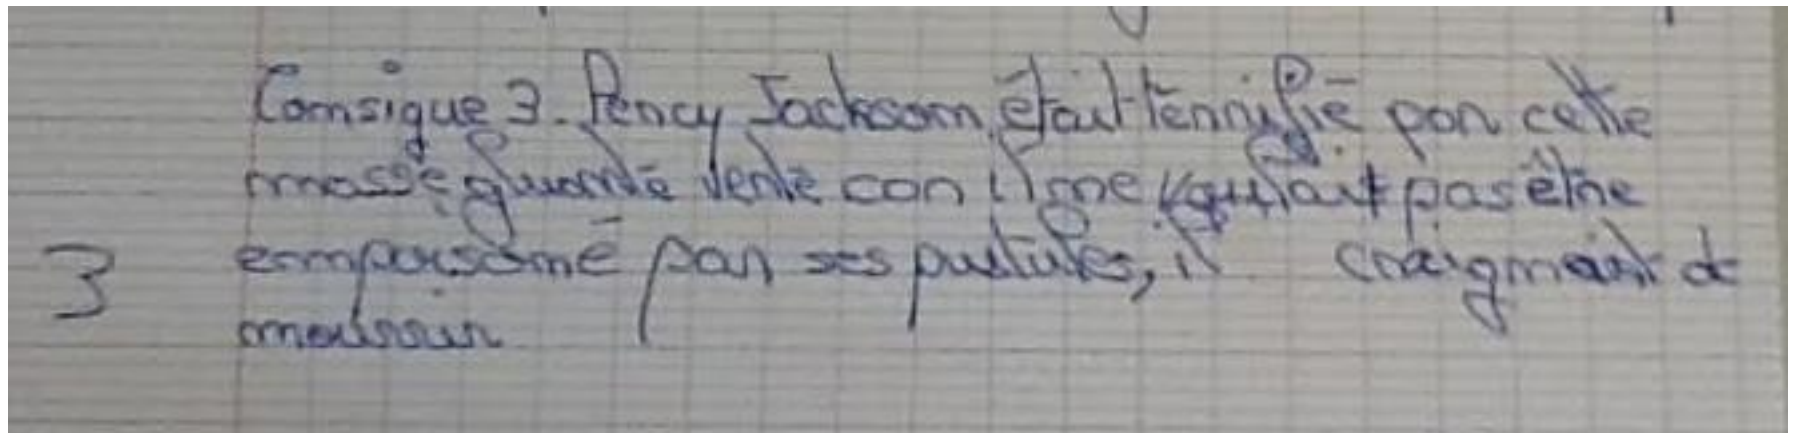 Consigne 3. Percy Jackson était terrifié par cette
masse gluante verte car il ne voulait pas être
empoisonné par ses pustules, il craignait de
mourrir
3